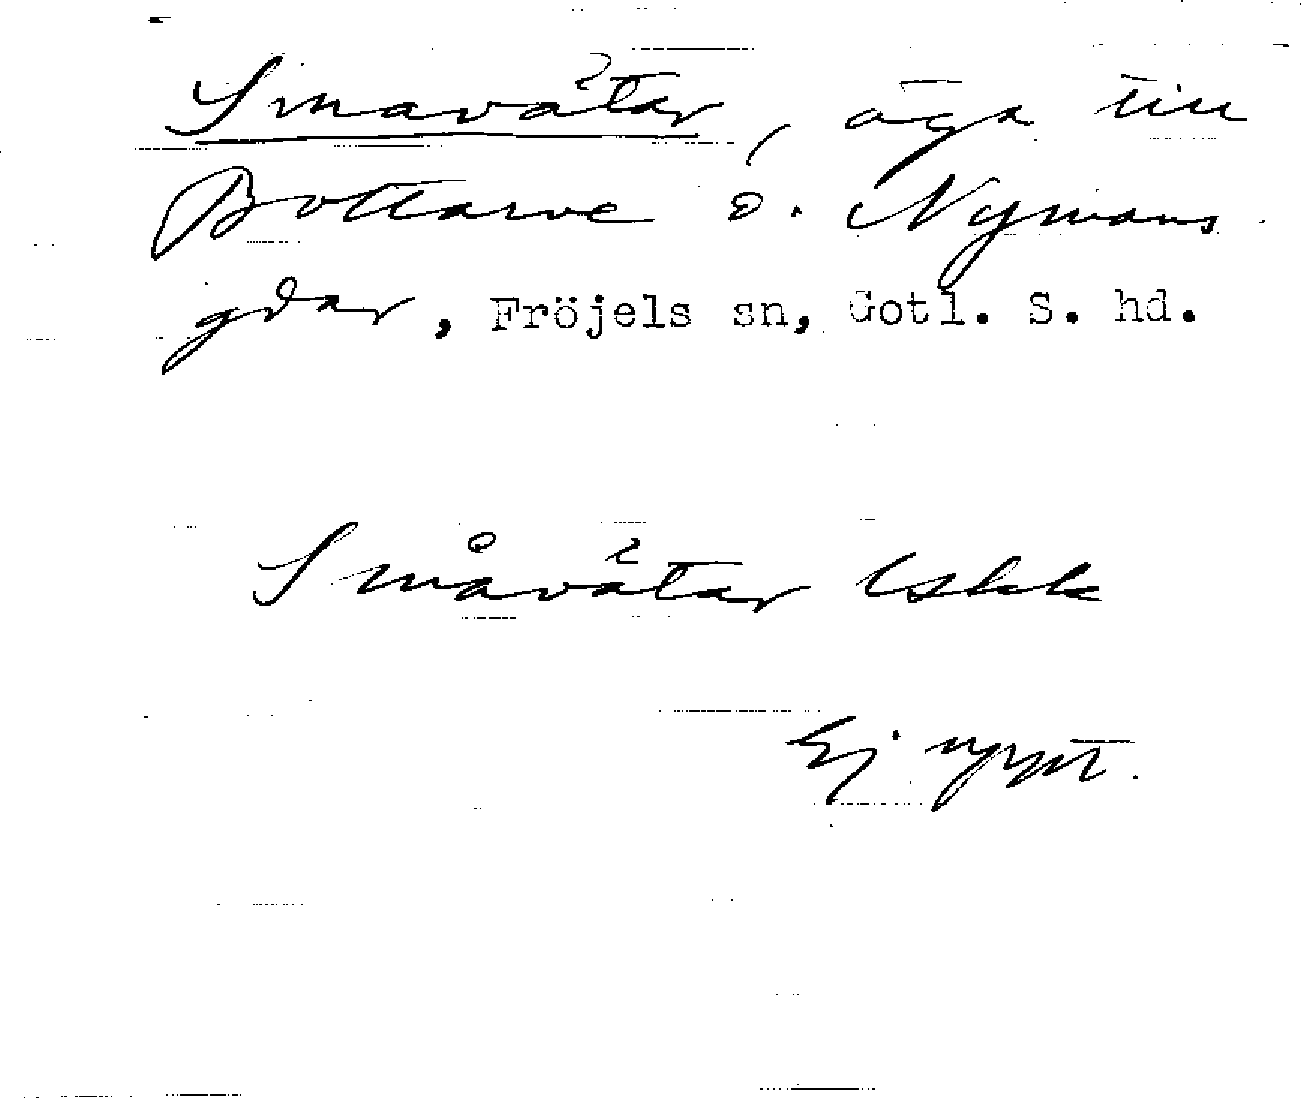 Smavätar, äga till
Bottarve o. Nymans
gdar, Fröjels sn, Gotl. S. hd.
Småvätar lskk
Ej uppt.